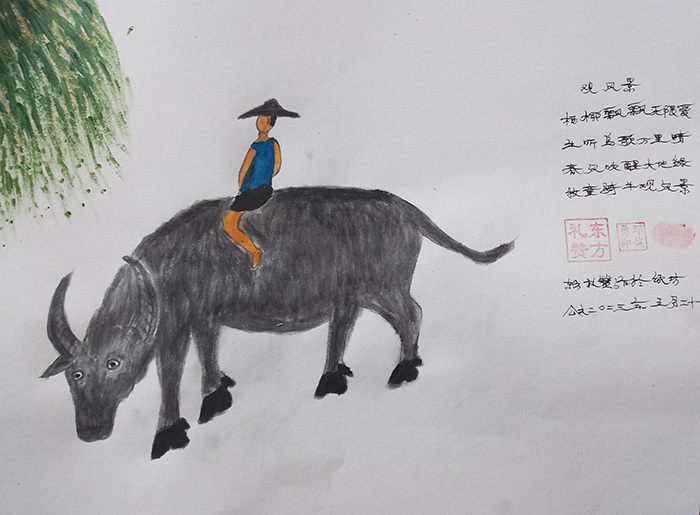 观风景
杨柳飘飘无限爱
坐听鸟歌万里晴
春风吹醒大地绿
牧童骑牛观风景
东方
礼赞
公元二〇二三年五月二十